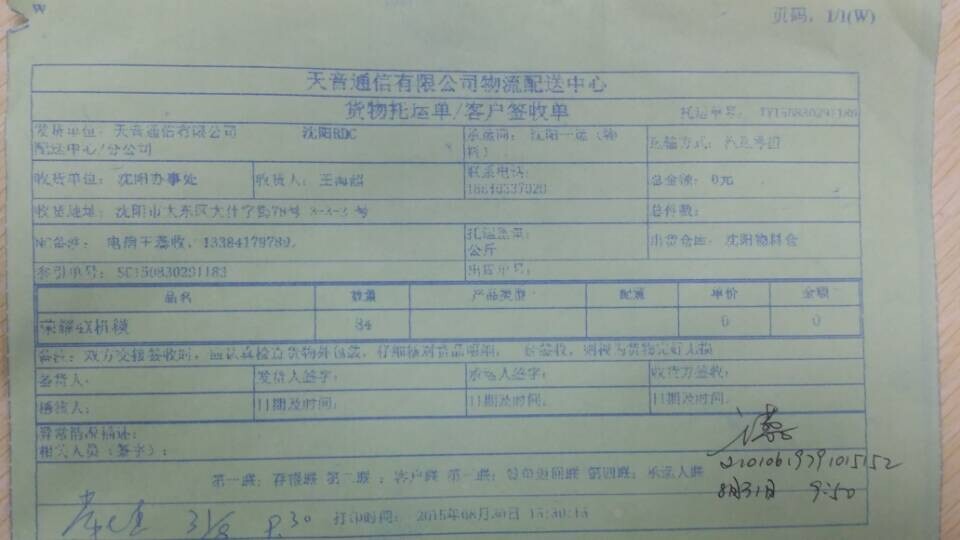 页码: 1/1(W)
天音通信有限公司物流配送中心
货物托运单/客户签收单
托运单号:
发货单位: 天音通信有限公司 沈阳RDC
配送中心/分公司
承运商: 沈阳一运(物
料)
运输方式:
收货单位: 沈阳办事处
收货人: 王海超
联系电话:
18640337020
总金额: 0元
收货地址: 沈阳市大东区大什字街78号 3-3-3 号
总件数:
NC备注: 电商王蕊收, 13384179789.
托运重量:
公斤
出货仓库: 沈阳物料仓
索引单号: SC150830291183
出库单号:
品名 数量 产品类型 配置 单价 金额
荣耀4X机模 84 0 0
备注: 双方交接签收时, 应认真检查货物外包装, 仔细核对货品明细, 签收, 则视为货物完好无损
备货人: 发货人签字: 承运人签字: 收货方签收:
播货人: 日期及时间: 日期及时间: 日期及时间:
异常情况描述:
相关人员(签字):
第一联: 存根联 第二联: 客户联 第三联: 签收返回联 第四联: 承运人联
8月31日 9:50
31/8
打印时间: 2015年08月30日